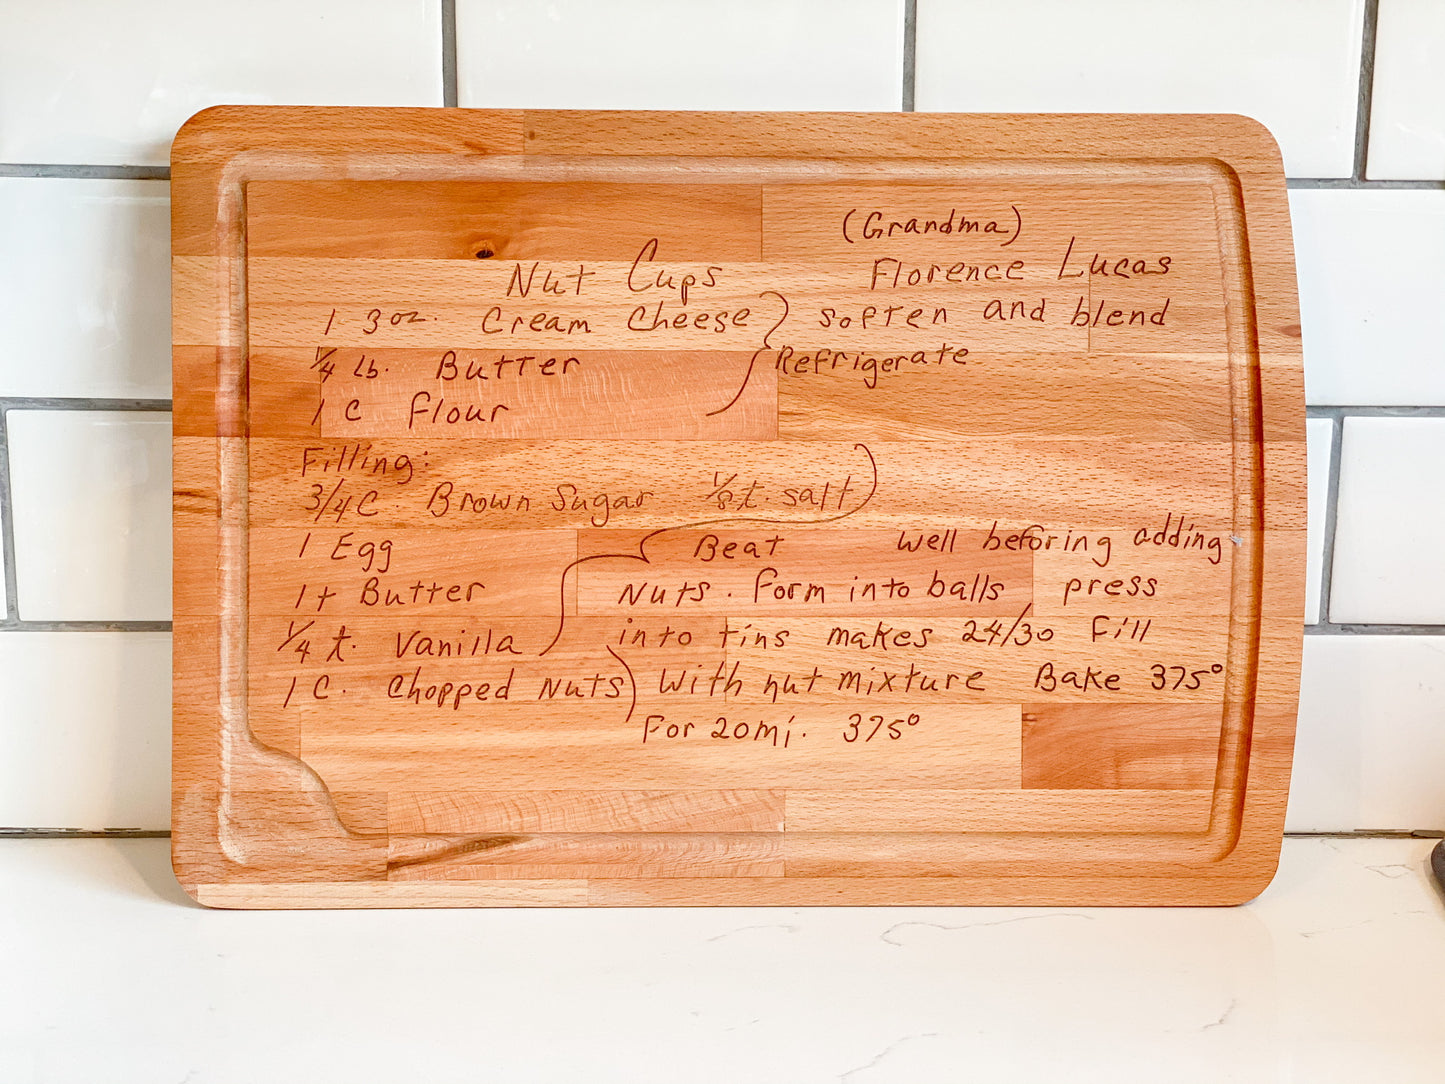 (Grandma)
Nut Cups Florence Lucas
1 3 oz. Cream Cheese } soften and blend
1/4 lb. Butter Refrigerate
1 C Flour
Filling:
3/4 C. Brown Sugar 1/8 t. salt
1 Egg Beat well beforing adding
1 t Butter Nuts. Form into balls press
1/4 t. Vanilla into tins makes 24/30 Fill
1 C. Chopped Nuts) With nut mixture Bake 375°
For 20 mi. 375°